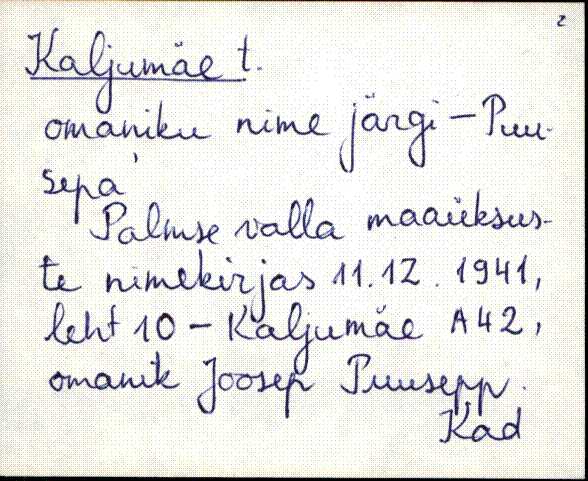 2
Kaljumäe t.
omaniku nime järgi - Puu-
sepa'
Palmse valla maaüksus-
te nimekirjas 11.12.1941,
leht 10 - Kaljumäe A42,
omanik Joosep Puusepp.
Kad